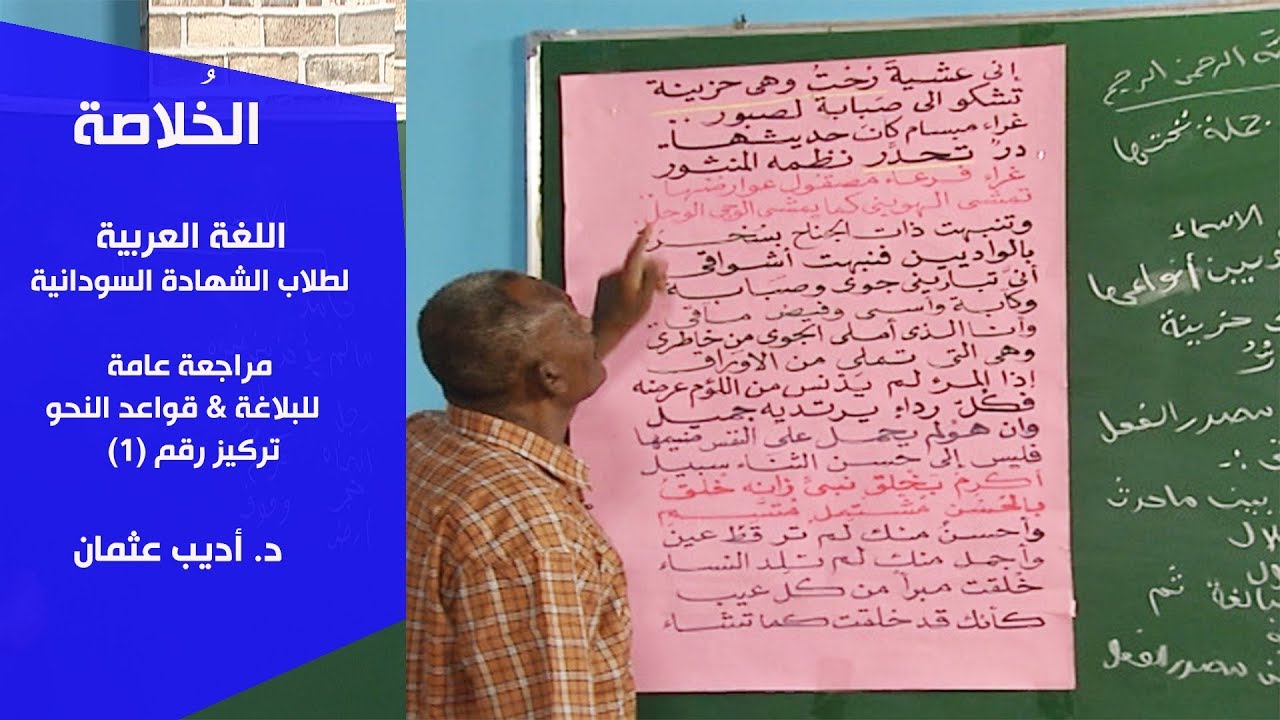 الخُلاصة
اللغة العربية
لطلاب الشهادة السودانية
مراجعة عامة
للبلاغة & قواعد النحو
تركيز رقم (1)
د. أديب عثمان
إنى عشيةَ رُحْتُ وهى حزينة
تشكو الى صَبابة لصبور ..
غراء مبسام كانَ حديثها
درٌ تحدَّر نظمه المنثور
غراء فرعاء مصقول عوارضها
تمشى الهوينى كما يمشى الوجى الوحل
وتنبهت ذات الجناح بسُخرَة
بالواديين فنبهت أشواقى
أنّى تبارينى جوى وصَبابة
وكآبة وأسى وفيض مآقى
وأنا الذى أملى الجوى من خاطرى
وهى التى تملى من الأوراق
إذا المرءُ لم يدنس من اللؤم عرضه
فكلّ رداءٍ يرتديه جميل
وان هو لم يحمل على النفس ضيمها
فليس إلى حسن الثناء سبيل
أكرم بخلق نبىّ زانه خُلقُ
بالحُسن مشتمل متسم
وأحسنُ منك لم تر قَطُّ عين
وأجمل منك لم تلد النساء
خُلقت مبرأً من كل عيب
كأنك قد خلقت كما تشاء
الرحمن الرحيم
جملة تحتها
الاسماء
وبين أنواعها
حزينة
مصدر الفعل
بيت ماحدث
ثم
مصدر الفعل